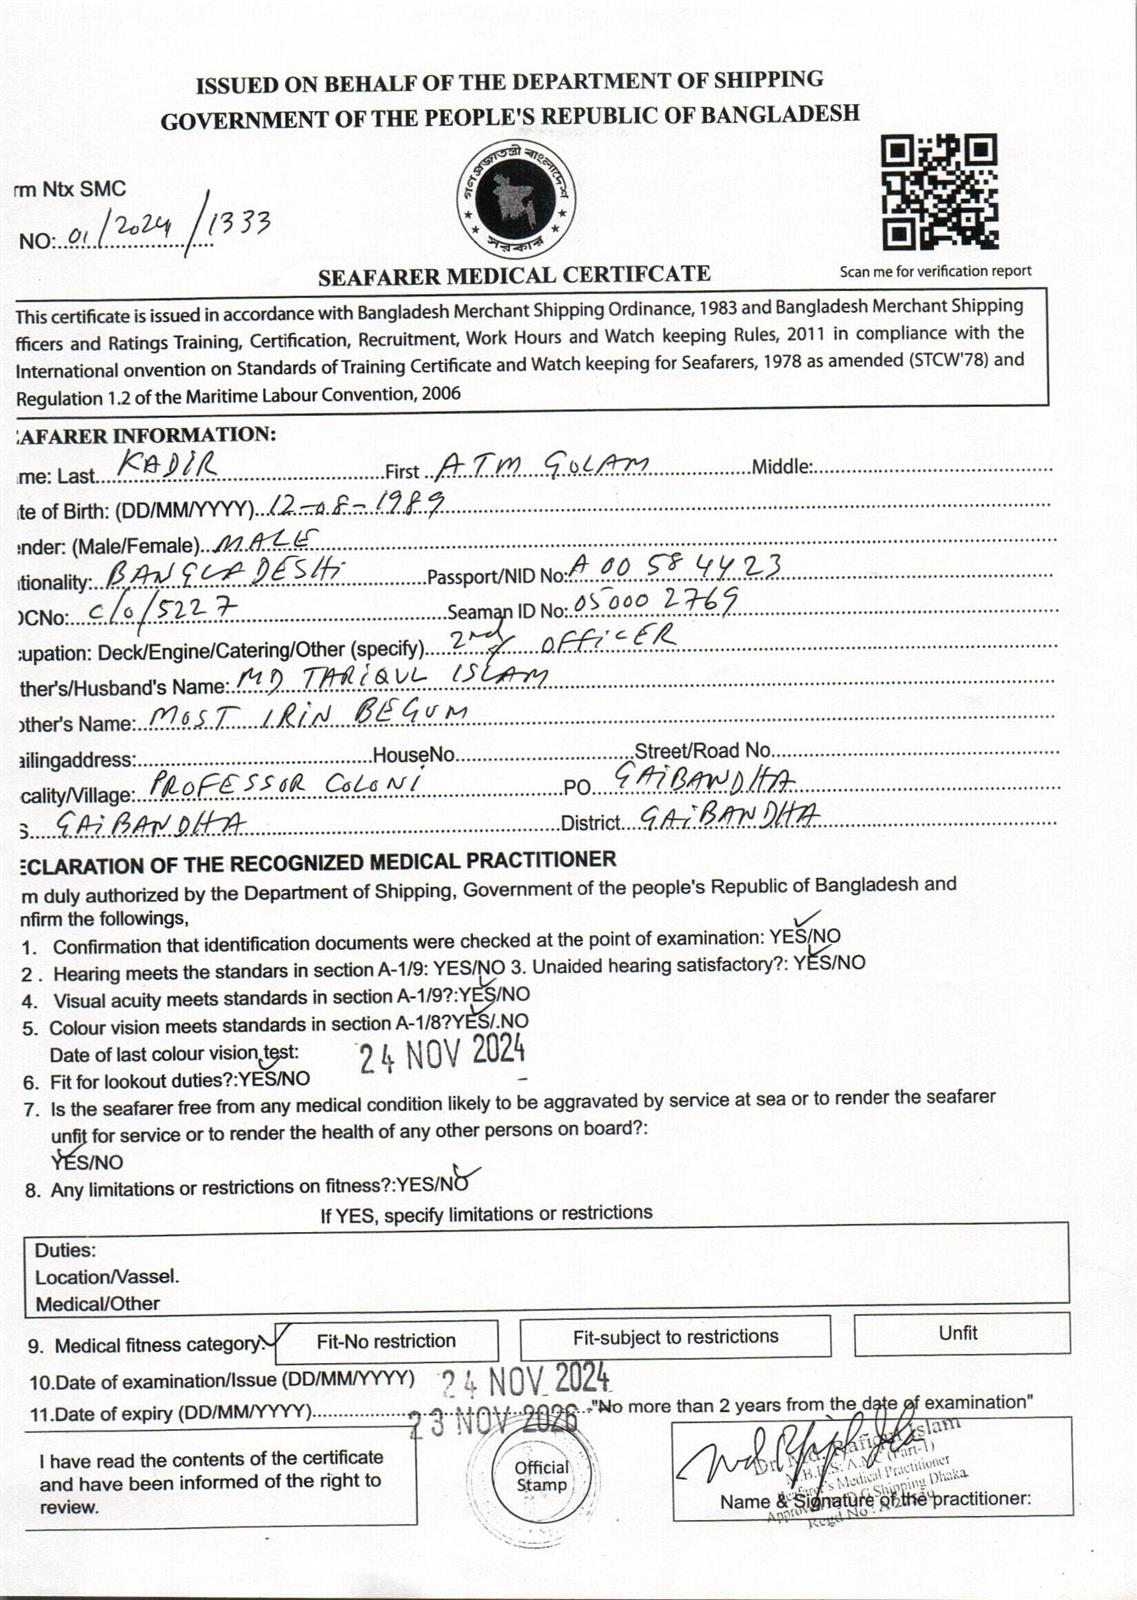 ISSUED ON BEHALF OF THE DEPARTMENT OF SHIPPING
GOVERNMENT OF THE PEOPLE'S REPUBLIC OF BANGLADESH
গণপ্রজাতন্ত্রী বাংলাদেশ
সরকার
rm Ntx SMC
NO: 01/2024/1333
SEAFARER MEDICAL CERTIFCATE
Scan me for verification report
This certificate is issued in accordance with Bangladesh Merchant Shipping Ordinance, 1983 and Bangladesh Merchant Shipping
fficers and Ratings Training, Certification, Recruitment, Work Hours and Watch keeping Rules, 2011 in compliance with the
International onvention on Standards of Training Certificate and Watch keeping for Seafarers, 1978 as amended (STCW'78) and
Regulation 1.2 of the Maritime Labour Convention, 2006
AFARER INFORMATION:
me: Last KADIR First ATM GOLAM Middle:
te of Birth: (DD/MM/YYYY) 12-08-1989
nder: (Male/Female) MALE
tionality: BANGLADESHi Passport/NID No: A 00 58 4423
CNo: C/O/5227 Seaman ID No: 05000 2769
upation: Deck/Engine/Catering/Other (specify) 2nd OFFiCER
ther's/Husband's Name: MD TARiQUL ISLAM
other's Name: MOST IRIN BEGUM
ailingaddress: HouseNo Street/Road No
cality/Village: PROFESSOR COLONI PO GAiBANDHA
S GAiBANDHA District GAiBANDHA
ECLARATION OF THE RECOGNIZED MEDICAL PRACTITIONER
m duly authorized by the Department of Shipping, Government of the people's Republic of Bangladesh and
nfirm the followings,
1. Confirmation that identification documents were checked at the point of examination: YES/NO
2 . Hearing meets the standars in section A-1/9: YES/NO 3. Unaided hearing satisfactory?: YES/NO
4. Visual acuity meets standards in section A-1/9?:YES/NO
5. Colour vision meets standards in section A-1/8?YES/.NO
Date of last colour vision test: 24 NOV 2024
6. Fit for lookout duties?:YES/NO
7. Is the seafarer free from any medical condition likely to be aggravated by service at sea or to render the seafarer
unfit for service or to render the health of any other persons on board?:
YES/NO
8. Any limitations or restrictions on fitness?:YES/NO
If YES, specify limitations or restrictions
Duties:
Location/Vassel.
Medical/Other
9. Medical fitness category: Fit-No restriction Fit-subject to restrictions Unfit
10.Date of examination/Issue (DD/MM/YYYY) 24 NOV 2024
11.Date of expiry (DD/MM/YYYY) 23 NOV 2026 "No more than 2 years from the date of examination"
I have read the contents of the certificate
and have been informed of the right to
review.
Official
Stamp
Dr. Md. Rafiqul Islam
Seafarer's Medical Practitioner
Shipping Dhaka
Name & Signature of the practitioner:
Regd No :